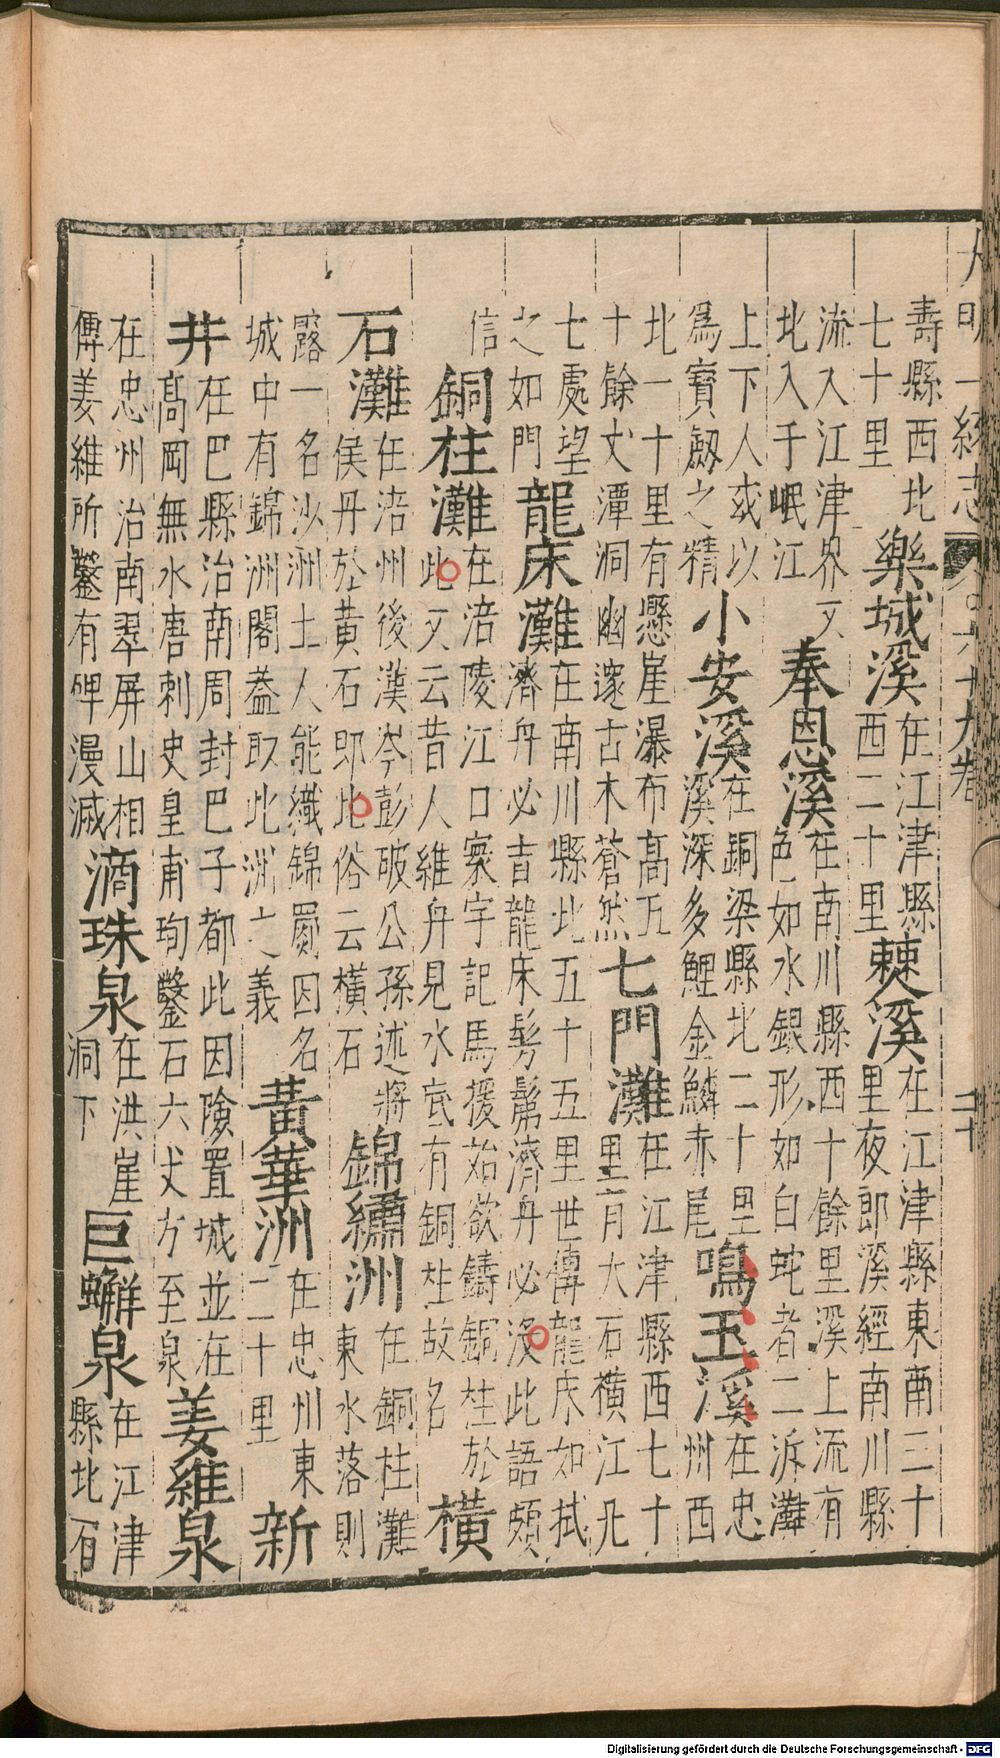 大明一統志
六十九卷
二十
壽縣西北
七十里
樂城溪
在江津縣
西二十里
棘溪
在江津縣東南三十
里夜郎溪經南川縣
流入江津界又
北入于岷江
奉恩溪
在南川縣西十餘里溪上流有
色如水銀形如白蛇者二泝灘
上下人或以
爲寳劔之精
小安溪
在銅梁縣北二十里
溪深多鯉金鱗赤尾
鳴玉溪
在忠
州西
北一十里有懸崖瀑布髙五
十餘丈潭洞幽邃古木蒼然
七門灘
在江津縣西七十
里有大石橫江凡
七處望
之如門
龍床灘
在南川縣北五十五里世傳龍床如拭
濟舟必吉龍床髣髴濟舟必沒此語頗
信
銅柱灘
在涪陵江口寰宇記馬援始欲鑄銅柱於
此又云昔人維舟見水底有銅柱故名
橫
石灘
在涪州後漢岑彭破公孫述將
侯丹於黃石即此俗云橫石
錦繡洲
在銅柱灘
東水落則
露一名沙洲土人能織錦罽因名
城中有錦洲閣葢取此洲之義
黃華洲
在忠州東
二十里
新
井
在巴縣治南周封巴子都此因險置城並在
髙岡無水唐刺史皇甫珣鑿石六丈方至泉
姜維泉
在忠州治南翠屏山相
傳姜維所鑿有碑漫滅
滴珠泉
在洪崖
洞下
巨蠏泉
在江津
縣北有
Digitalisierung gefördert durch die Deutsche Forschungsgemeinschaft - DFG